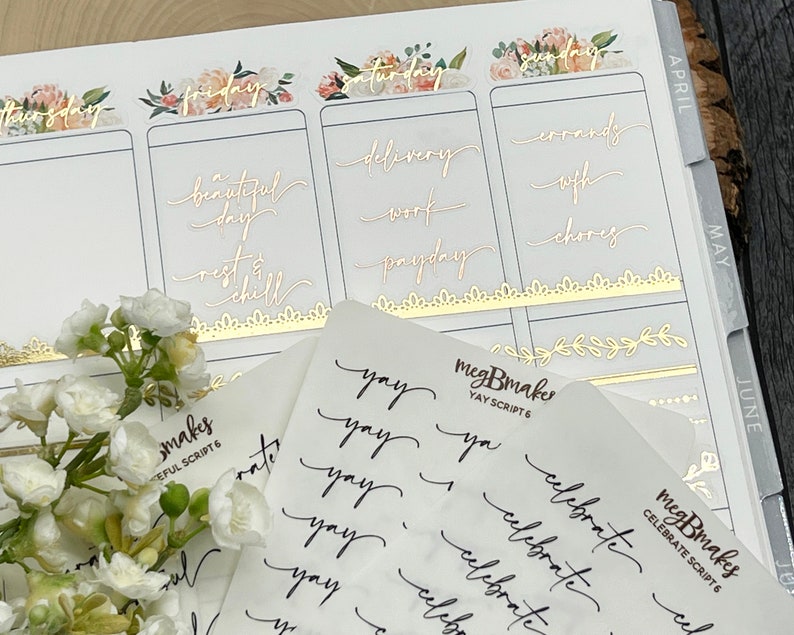 thursday
friday
saturday
sunday
a
beautiful
day
rest &
chill
delivery
work
payday
errands
wfh
chores
APRIL
MAY
JUNE
megBmakes
YAY SCRIPT 6
yay
yay
yay
yay
yay
megBmakes
CELEBRATE SCRIPT 6
celebrate
celebrate
celebrate
celebrate
celebrate